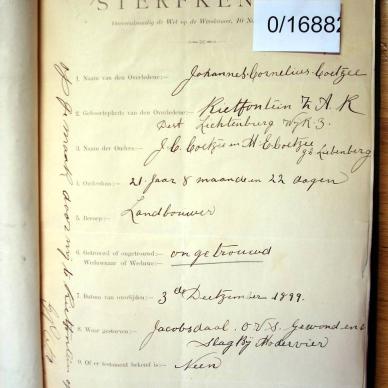 STERFKEN
0/16882
Overeenkomstig de Wet op de Weeskamer,
1. Naam van den Overledene:— Johannes Cornelius Coetzee
2. Geboorteplaats van den Overledene:— Rietfontein Z. A. R
Dist Lichtenburg Wyk 3.
3. Naam der Ouders:— J. C. Coetzee en M. E. Coetzee
gb Liebenberg
4. Ouderdom:— 21 Jaar 8 maande en 22 dagen
5. Beroep:— Landbouwer
6. Getrouwd of ongetrouwd:— ongetrouwd
Weduwnaar of Weduwe:—
7. Datum van overlijden:— 3de Deetzember 1899.
8. Waar gestorven:— Jacobsdaal. O V. S. Gewond en
Slag Bij Modervier
9. Of er testament bekend is:— Neen